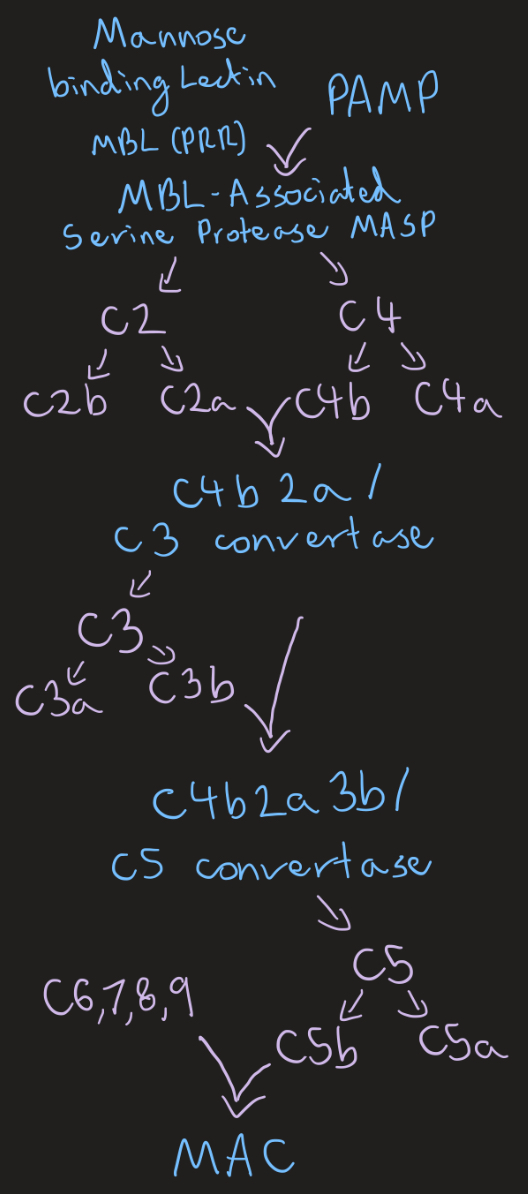 Mannose
binding Lectin
PAMP
MBL (PRR)
MBL-Associated
Serine Protease MASP
C2
C4
C2b
C2a
C4b
C4a
C4b2a/
C3 convertase
C3
C3a
C3b
C4b2a3b/
C5 convertase
C5
C6,7,8,9
C5b
C5a
MAC